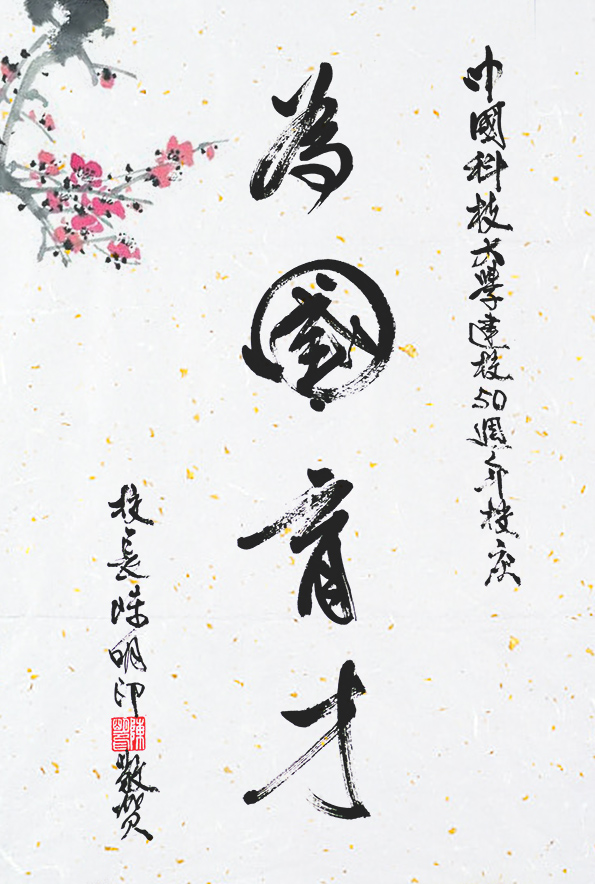 中國科技大學建校50週年校慶
為國育才
校長陳明印敬賀